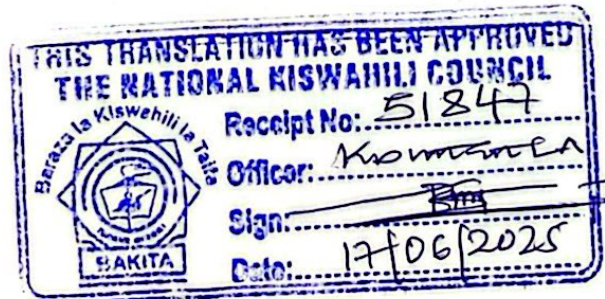 THIS TRANSLATION HAS BEEN APPROVED
THE NATIONAL KISWAHILI COUNCIL
Baraza la Kiswahili la Taifa
BAKITA
Receipt No: 51847
Officer:
Sign:
Date: 17/06/2025